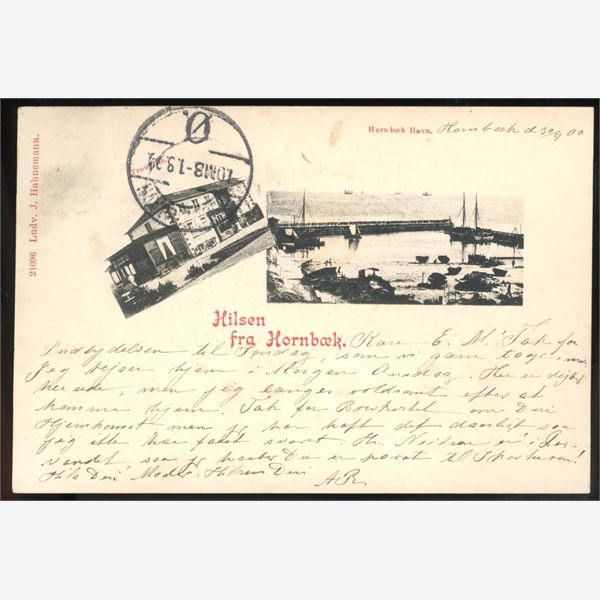 21096 Ludv. J. Hahnemann.
Ø
1.9.
Hornbæk Havn. Hornbæk d 30/
00
Hilsen
fra Hornbæk. Kære E. M! Tak for
Indbydelsen til Søndag, som vi gærne tage
Jeg rejser hjem i Morgen Onsdag. Her er dejligt
herude, men jeg længes voldsomt efter at
komme hjem. Tak for Brevkortet om Din
Hjemkomst men jeg har haft det saa
jeg ikke har faaet svart. Hr. Neilsen er i
vandet, saa jeg haaber Du er parat til
Hils Din Moder. Hilsen Din
A.R.